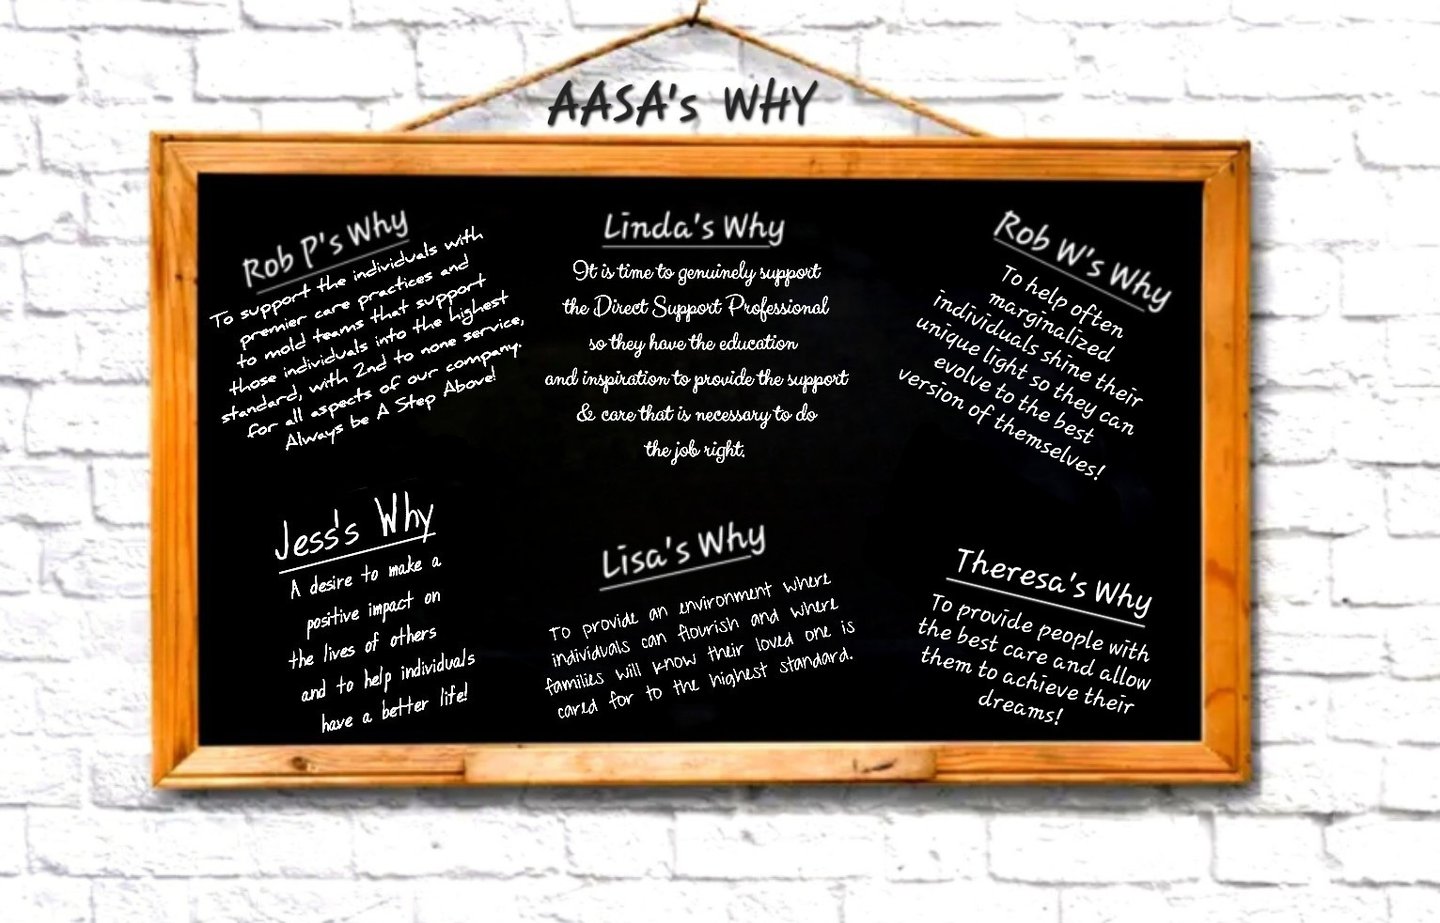 AASA's WHY
Rob P's Why
To support the individuals with
premier care practices and
to mold teams that support
those individuals into the highest
standard, with 2nd to none service,
for all aspects of our company.
Always be A Step Above!
Linda's Why
It is time to genuinely support
the Direct Support Professional
so they have the education
and inspiration to provide the support
& care that is necessary to do
the job right.
Rob W's Why
To help often
marginalized
individuals shine their
unique light so they can
evolve to the best
version of themselves!
Jess's Why
A desire to make a
positive impact on
the lives of others
and to help individuals
have a better life!
Lisa's Why
To provide an environment where
individuals can flourish and where
families will know their loved one is
cared for to the highest standard.
Theresa's Why
To provide people with
the best care and allow
them to achieve their
dreams!